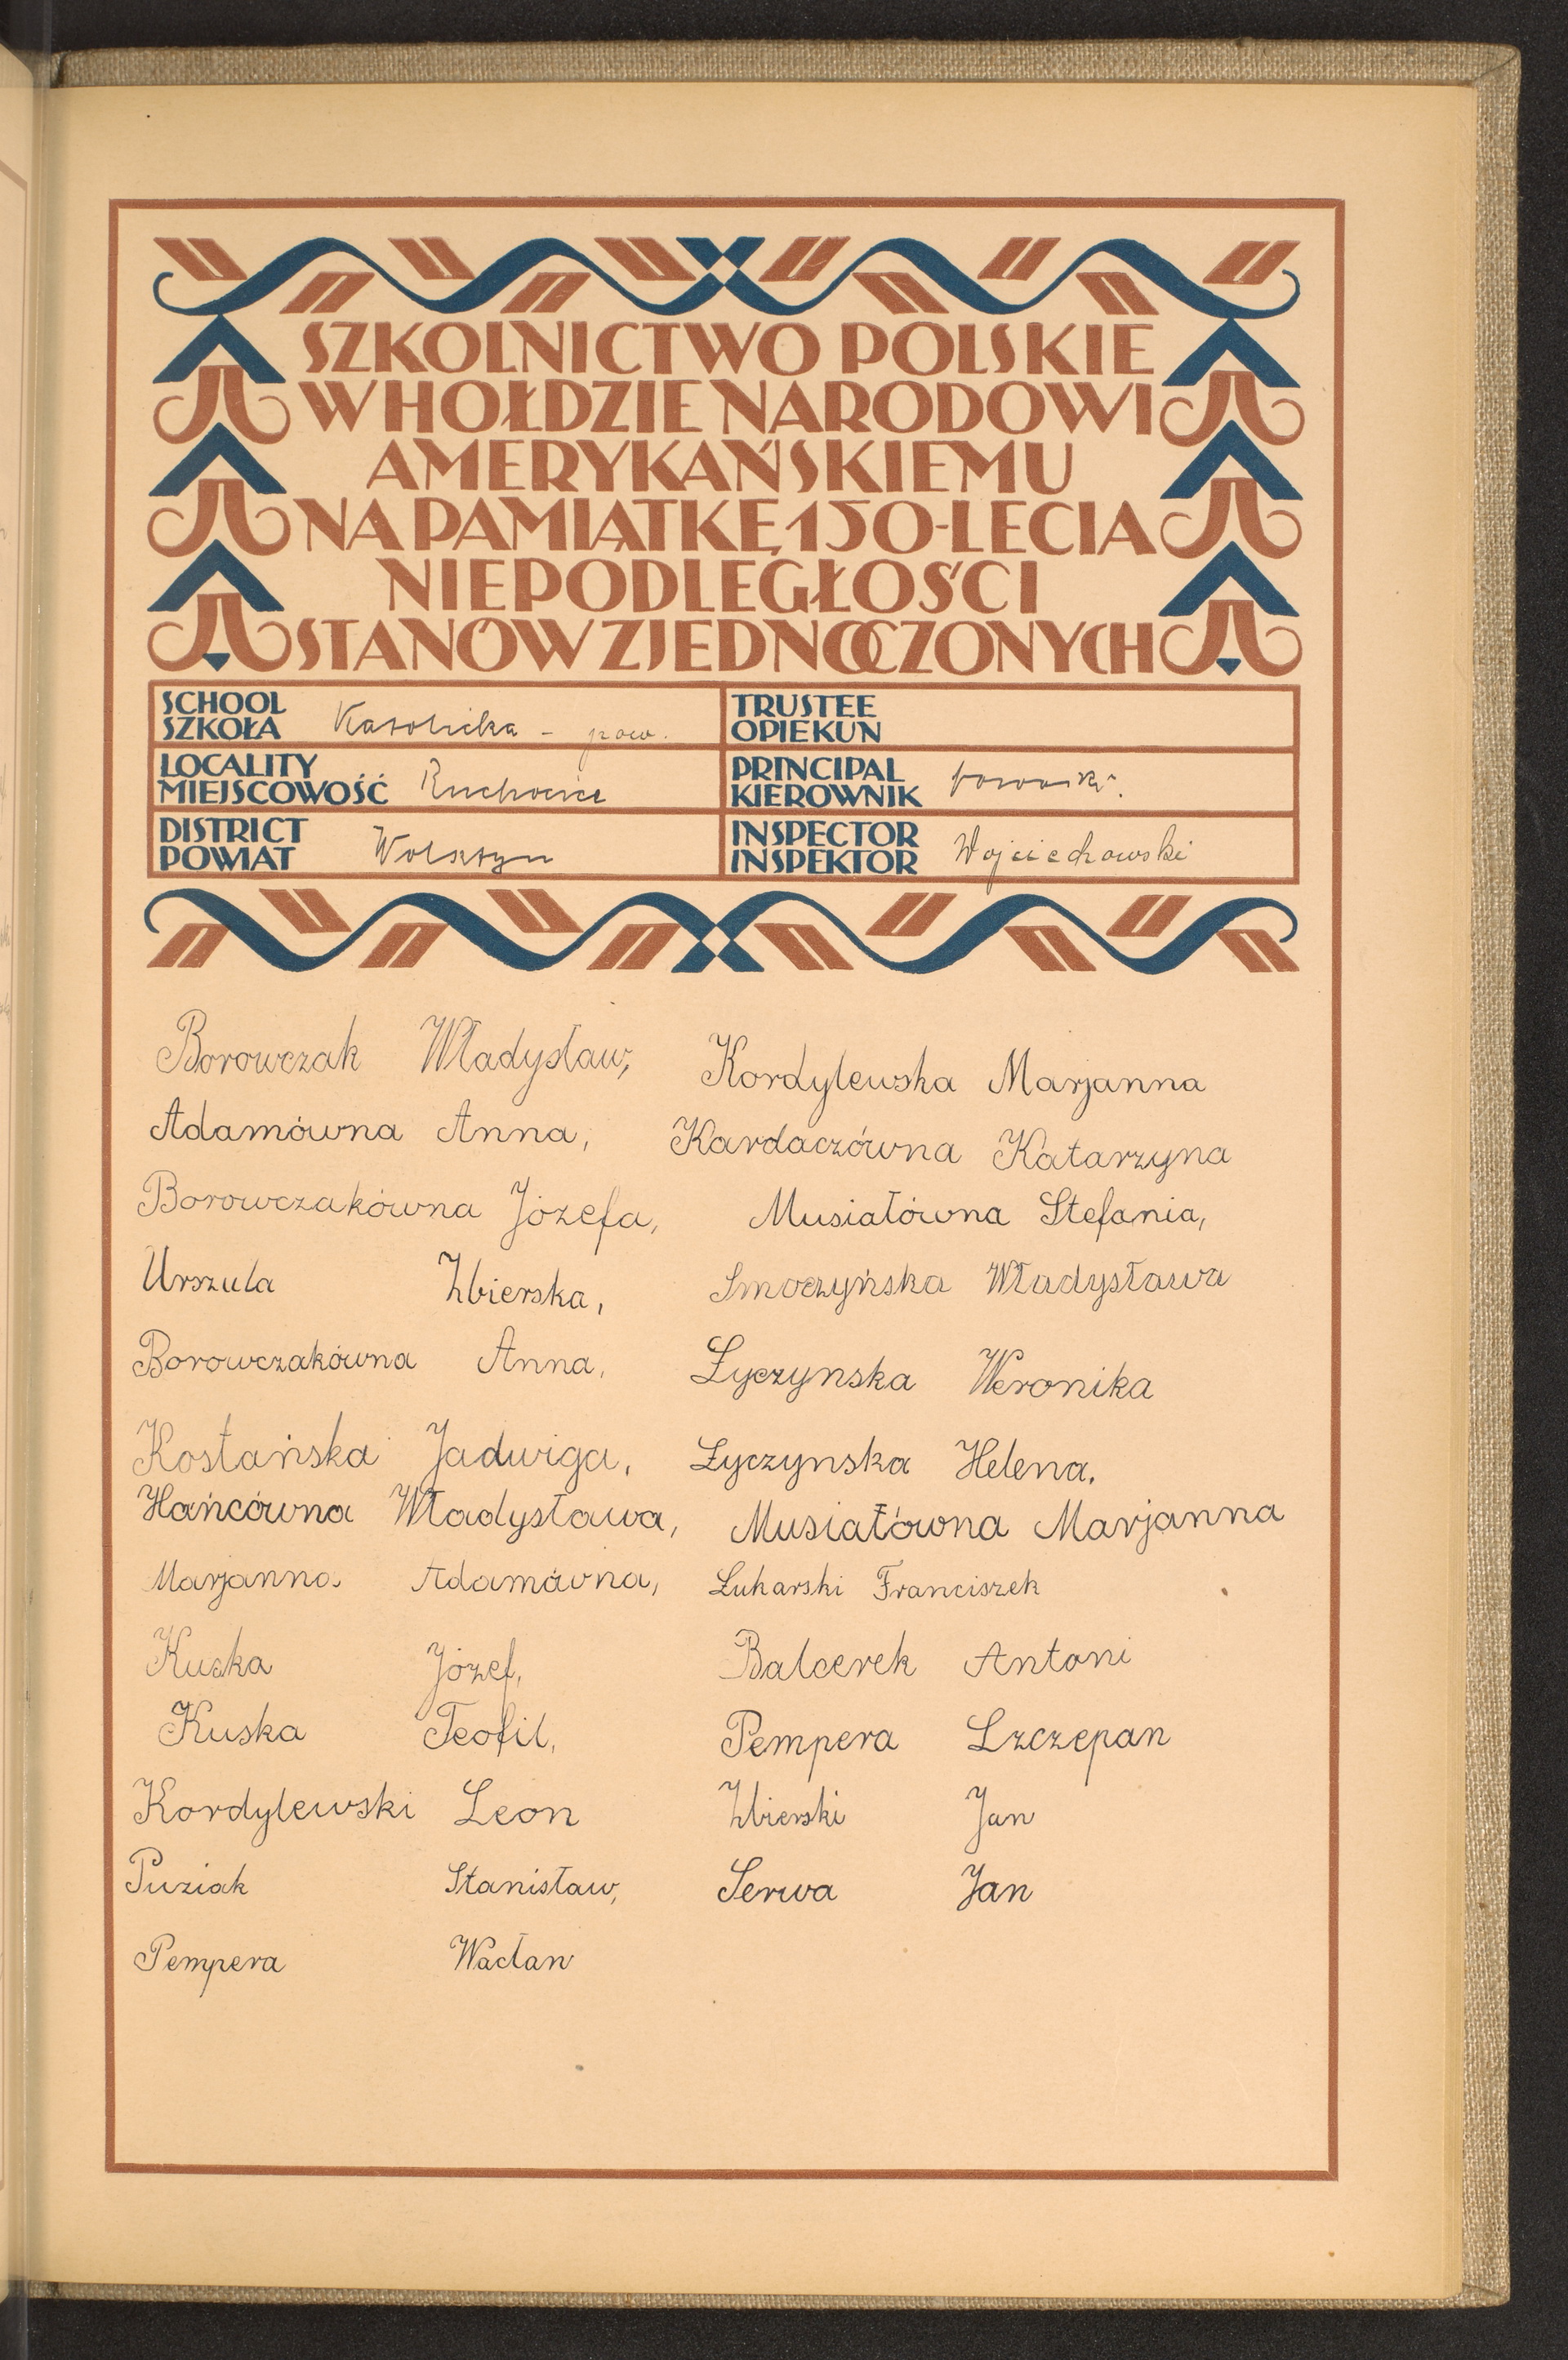 SZKOLNICTWO POLSKIE
W HOŁDZIE NARODOWI
AMERYKAŃSKIEMU
NA PAMIĄTKĘ 150-LECIA
NIEPODLEGŁOŚCI
STANÓW ZJEDNOCZONYCH
SCHOOL
SZKOŁA Katolicka - pow.
TRUSTEE
OPIEKUN
LOCALITY
MIEJSCOWOŚĆ Ruchocice
PRINCIPAL
KIEROWNIK
DISTRICT
POWIAT Wolsztyn
INSPECTOR
INSPEKTOR Wojciechowski
Borowczak Władysław, Kordylewska Marjanna
Adamówna Anna, Kardaczówna Katarzyna
Borowczakówna Józefa, Musiałówna Stefania,
Urszula Zbierska, Smoczyńska Władysława
Borowczakówna Anna, Życzynska Weronika
Kostańska Jadwiga, Życzynska Helena.
Hańcówna Władysława, Musiałówna Marjanna
Marjanna Adamówna, Łukarski Franciszek
Kuska Józef, Balcerek Antoni
Kuska Teofil, Pempera Szczepan
Kordylewski Leon Zbierski Jan
Puziak Stanisław, Serwa Jan
Pempera Wacław